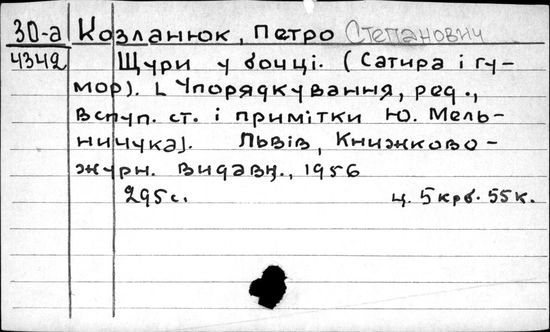 30-а Козланюк, Петро Степанович
4342 Щури у бочці. (Сатира і гу-
мор). [Упорядкування, ред.,
вступ. ст. і примітки Ю. Мель-
ничука]. Львів, Книжково-
журн. видавн., 1956
295 с. ц. 5 крб. 55 к.